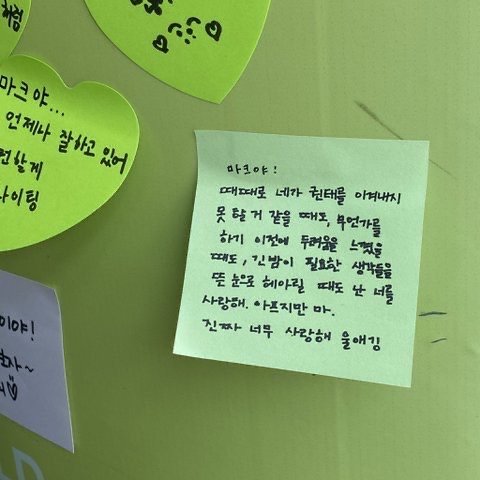 처럼
마크야...
언제나 잘하고 있어
원할게
마크야!
때때로 네가 권태를 이겨내지
못 할 거 같을 때도, 무언가를
하기 이전에 두려움을 느꼈을
때도, 긴 밤이 필요한 생각들을
뜬 눈으로 헤아릴 때도 난 너를
사랑해. 아프지만 마.
진짜 너무 사랑해 울애깅